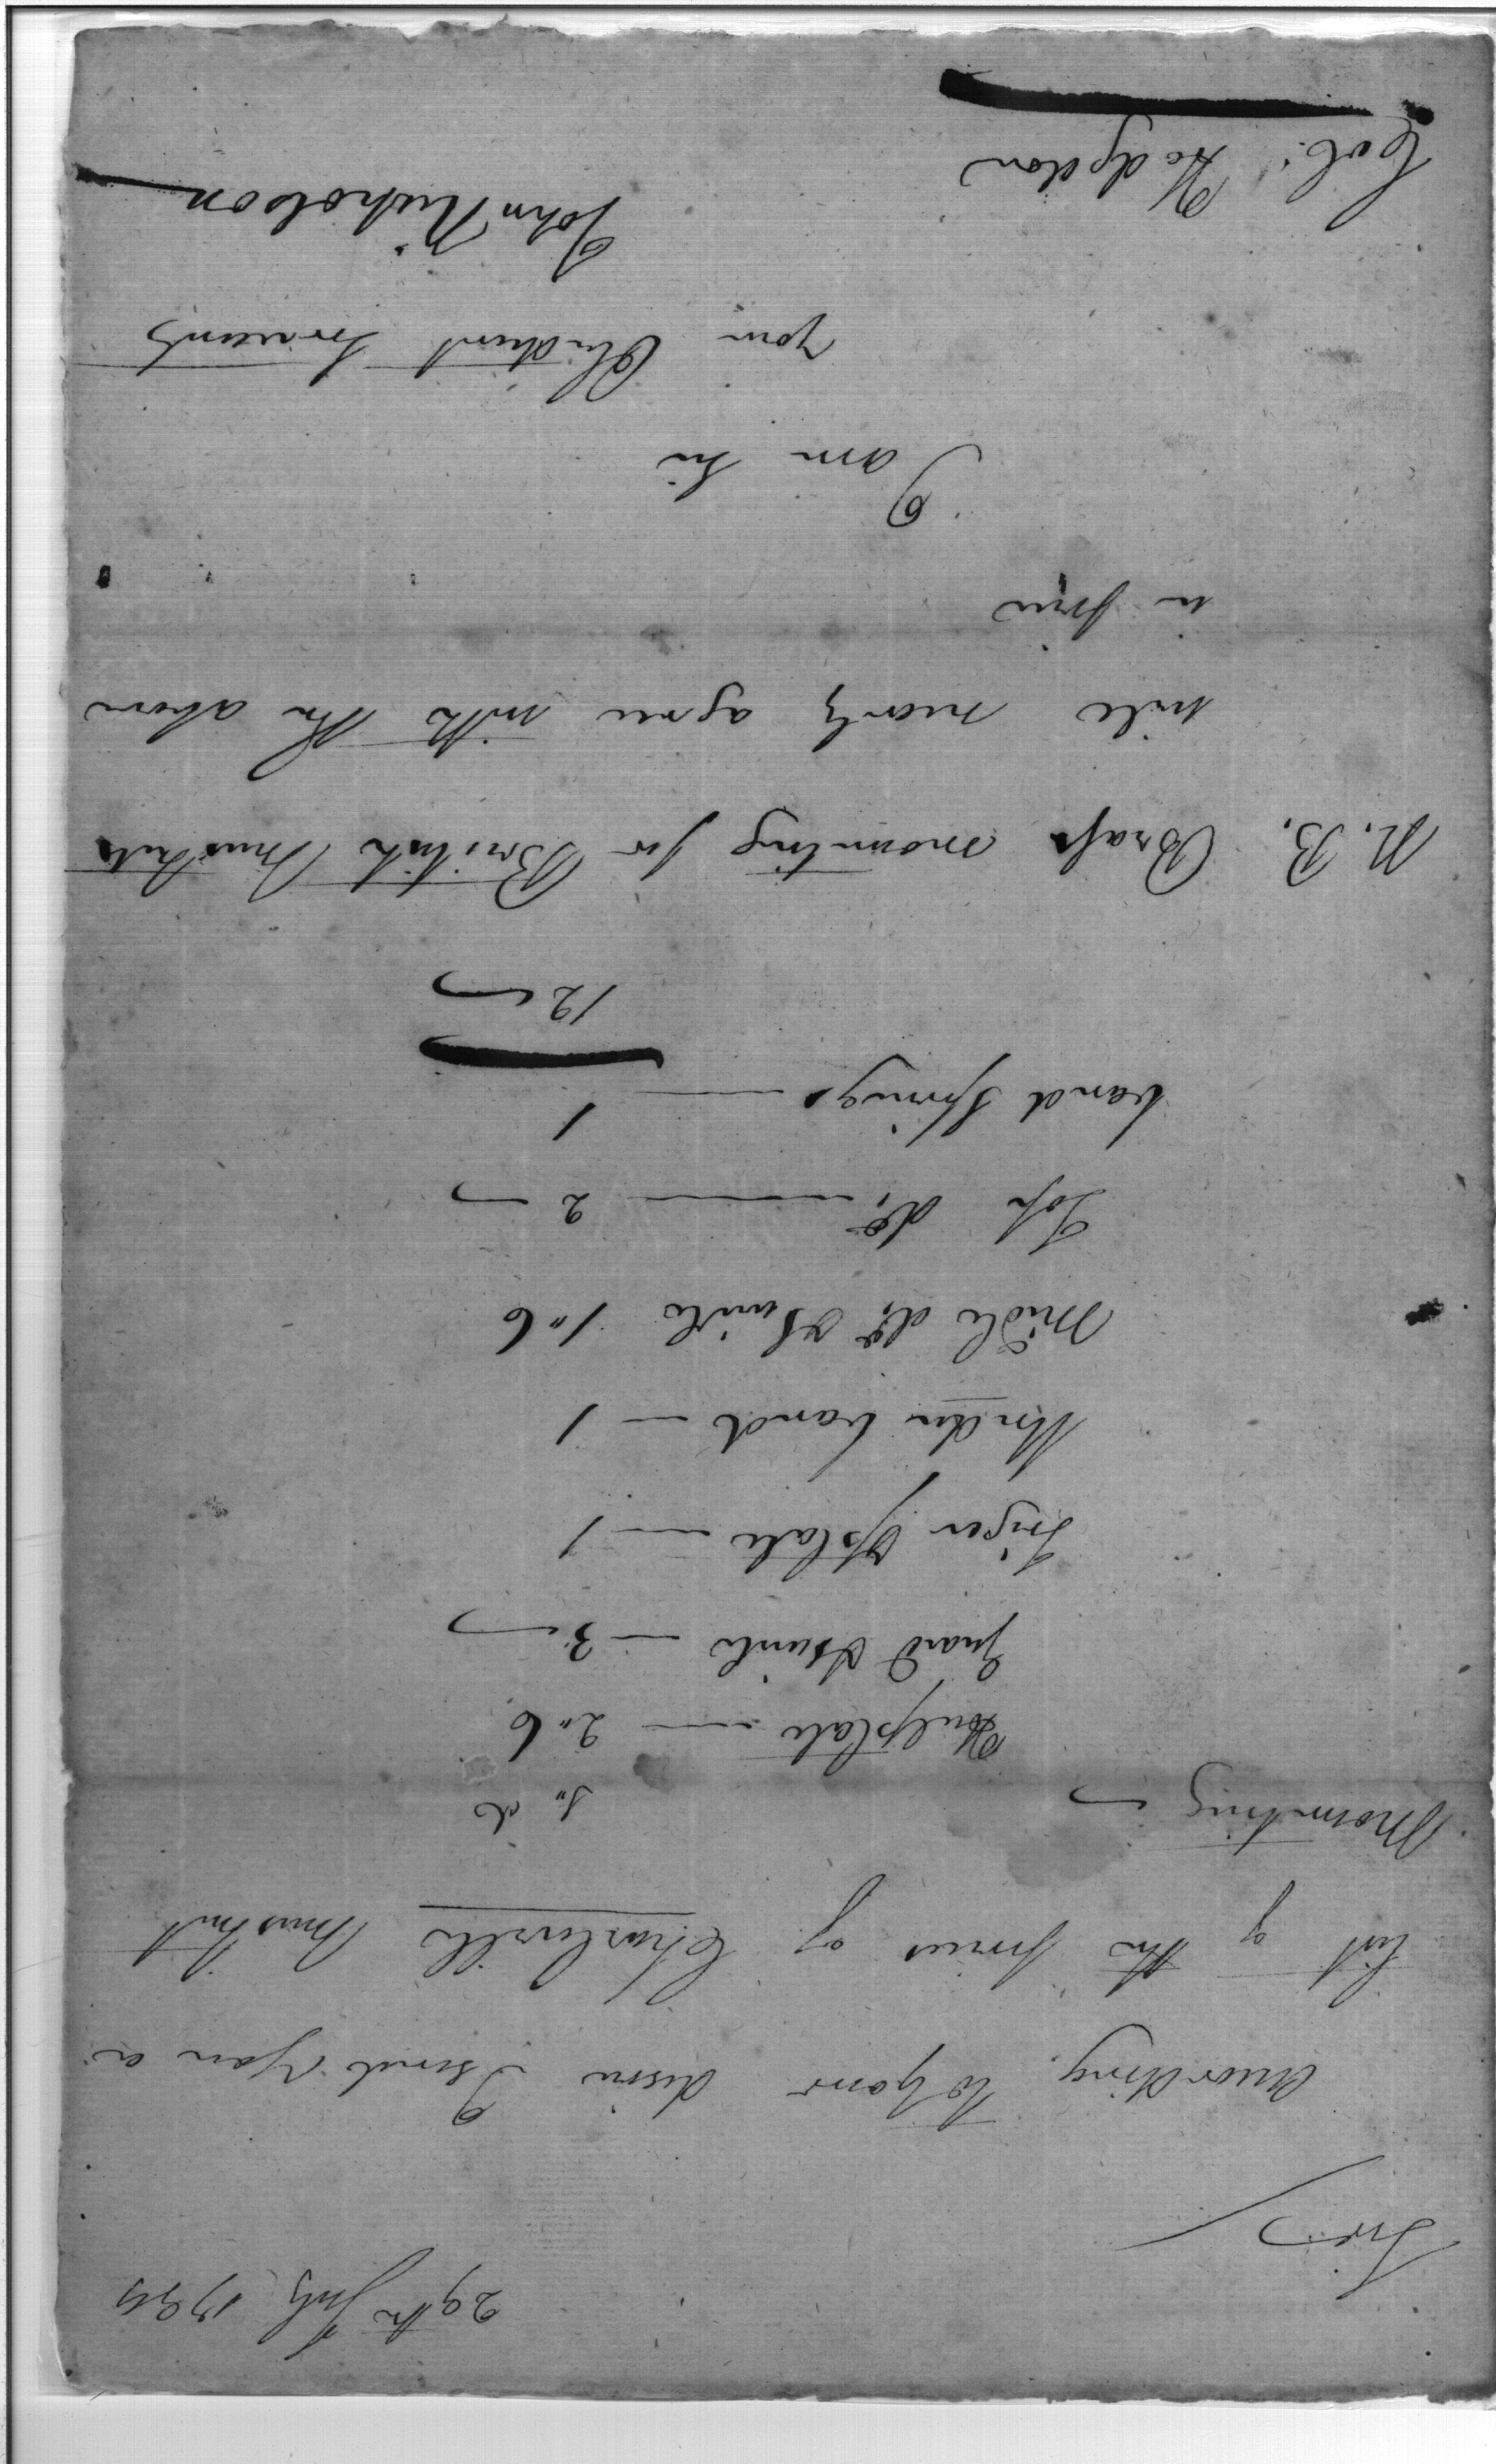 29th July 179
Sir
According to your desire I send you a
list of the prices of Charlaville Muskut
Mounting
s.. d
Heelplate 2..6
Guard & Swivle 3
Triger & plate 1
Under band 1
Midle do. & Swivle 1..6
Top do. 2
band Springs 1
12
N.B. Brass mounting for British Muskets
will nearly agree with the above
in price
I am Sir
your Obedient Servant
John Nicholson
Col: Hodgdon